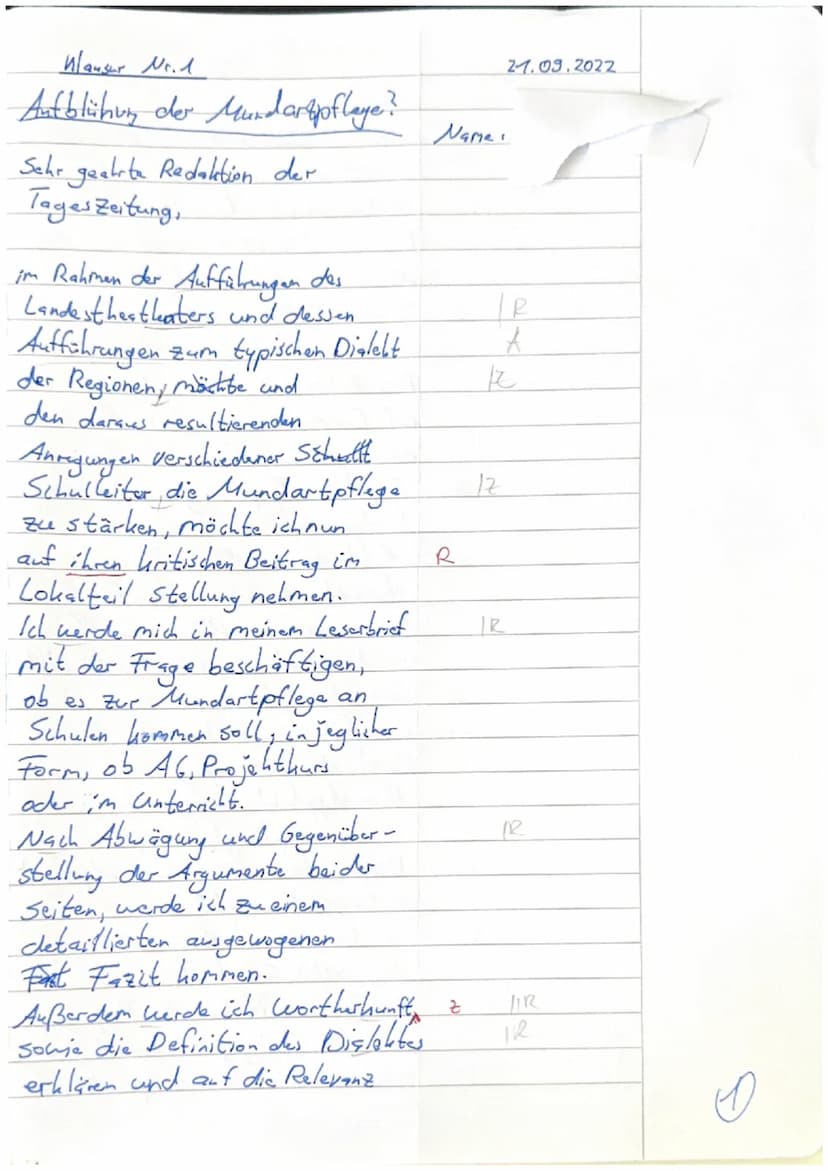 Klausur Nr. 1
21.09.2022
Aufblühung der Mundartpflege?
Name:
Sehr geehrte Redaktion der
Tageszeitung,
im Rahmen der Aufführungen des
Landestheathaters und dessen
|R
Aufführungen zum typischen Dialekt
A
der Regionen, möchte und
|Z
den daraus resultierenden
Anregungen verschiedener
Schulleiter, die Mundartpflege
|Z
zu stärken, möchte ich nun
auf ihren kritischen Beitrag im
R
Lokalteil Stellung nehmen.
Ich werde mich in meinem Leserbrief
|R
mit der Frage beschäftigen,
ob es zur Mundartpflege an
Schulen kommen soll, in jeglicher
Form, ob AG, Projektkurs
oder im Unterricht.
Nach Abwägung und Gegenüber-
|R
stellung der Argumente beider
Seiten, werde ich zu einem
detaillierten ausgewogenen
Fazit kommen.
Außerdem werde ich Wortherkunft,
Z
||R
sowie die Definition des Dialektes
|R
erklären und auf die Relevanz
1